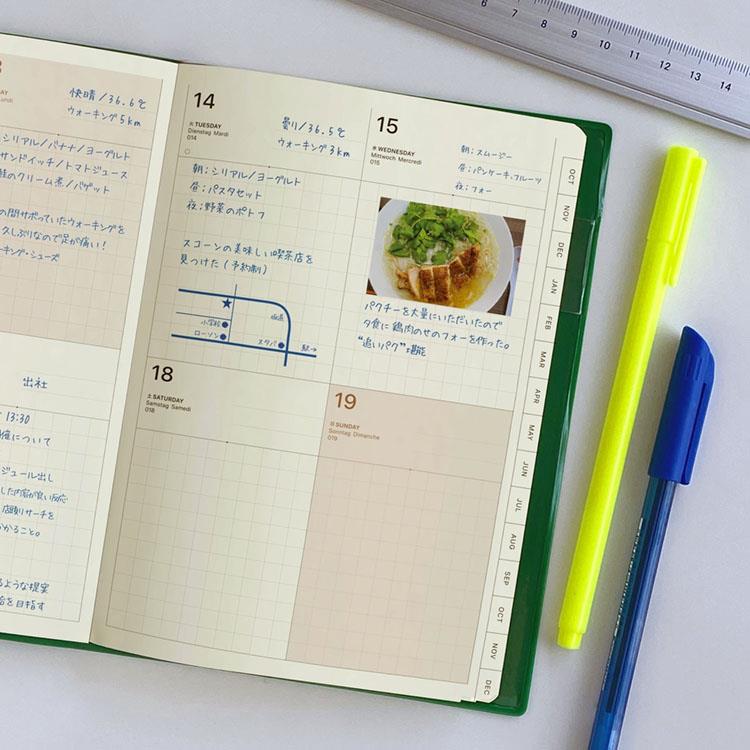 快晴/36.6℃
ウォーキング5km
シリアル/バナナ/ヨーグルト
サンドイッチ/トマトジュース
のクリーム煮/バゲット
の間サボっていたウォーキングを
久しぶりなので足が痛い!
ーキング・シューズ
出社
13:30
について
ジュール出し
した内容が良い反応
店頭リサーチを
かること。
るような提案
を目指す
14
火 TUESDAY
Dienstag Mardi
014
曇り/36.5℃
ウォーキング3km
朝:シリアル/ヨーグルト
昼:パスタセット
夜:野菜のポトフ
スコーンの美味しい喫茶店を
見つけた(予約制)
小学校
ローソン
スタバ
駅→
15
水 WEDNESDAY
Mittwoch Mercredi
015
朝:スムージー
昼:パンケーキ,フルーツ
夜:フォー
パクチーを大量にいただいたので
夕食に鶏肉のせのフォーを作った。
"追いパク"堪能
18
土 SATURDAY
Samstag Samedi
018
19
日 SUNDAY
Sonntag Dimanche
019
OCT
NOV
DEC
JAN
FEB
MAR
APR
MAY
JUN
JUL
AUG
SEP
OCT
NOV
DEC
6 7 8 9 10 11 12 13 14